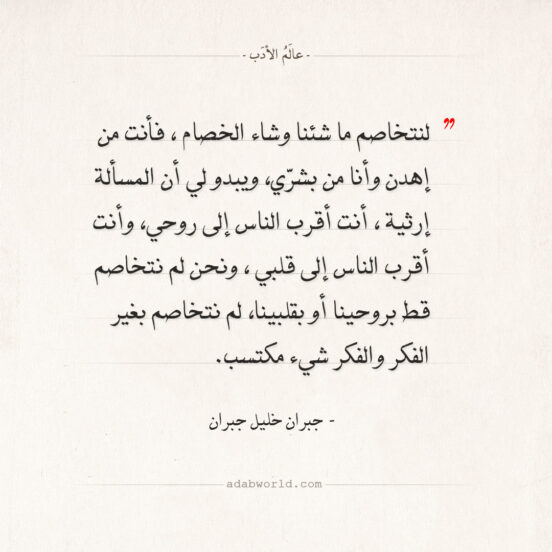 - عالَمُ الأدَب -
لنتخاصم ما شئنا وشاء الخصام ، فأنت من
إهدن وأنا من بشرّي، ويبدو لي أن المسألة
إرثية ، أنت أقرب الناس إلى روحي، وأنت
أقرب الناس إلى قلبي ، ونحن لم نتخاصم
قط بروحينا أو بقلبينا، لم نتخاصم بغير
الفكر والفكر شيء مكتسب.
- جبران خليل جبران
adabworld.com